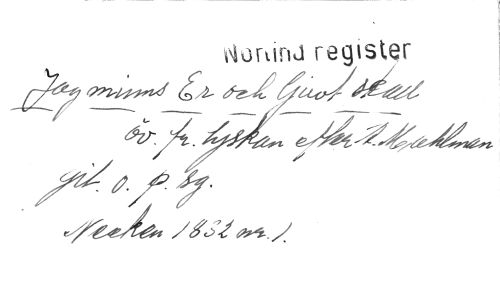 Norlind register
Jag minns Er och Givot skall
öv. fr. tyskan efter A. Mahlman
git. o. p. sg.
Necken 1832 nr. 1.